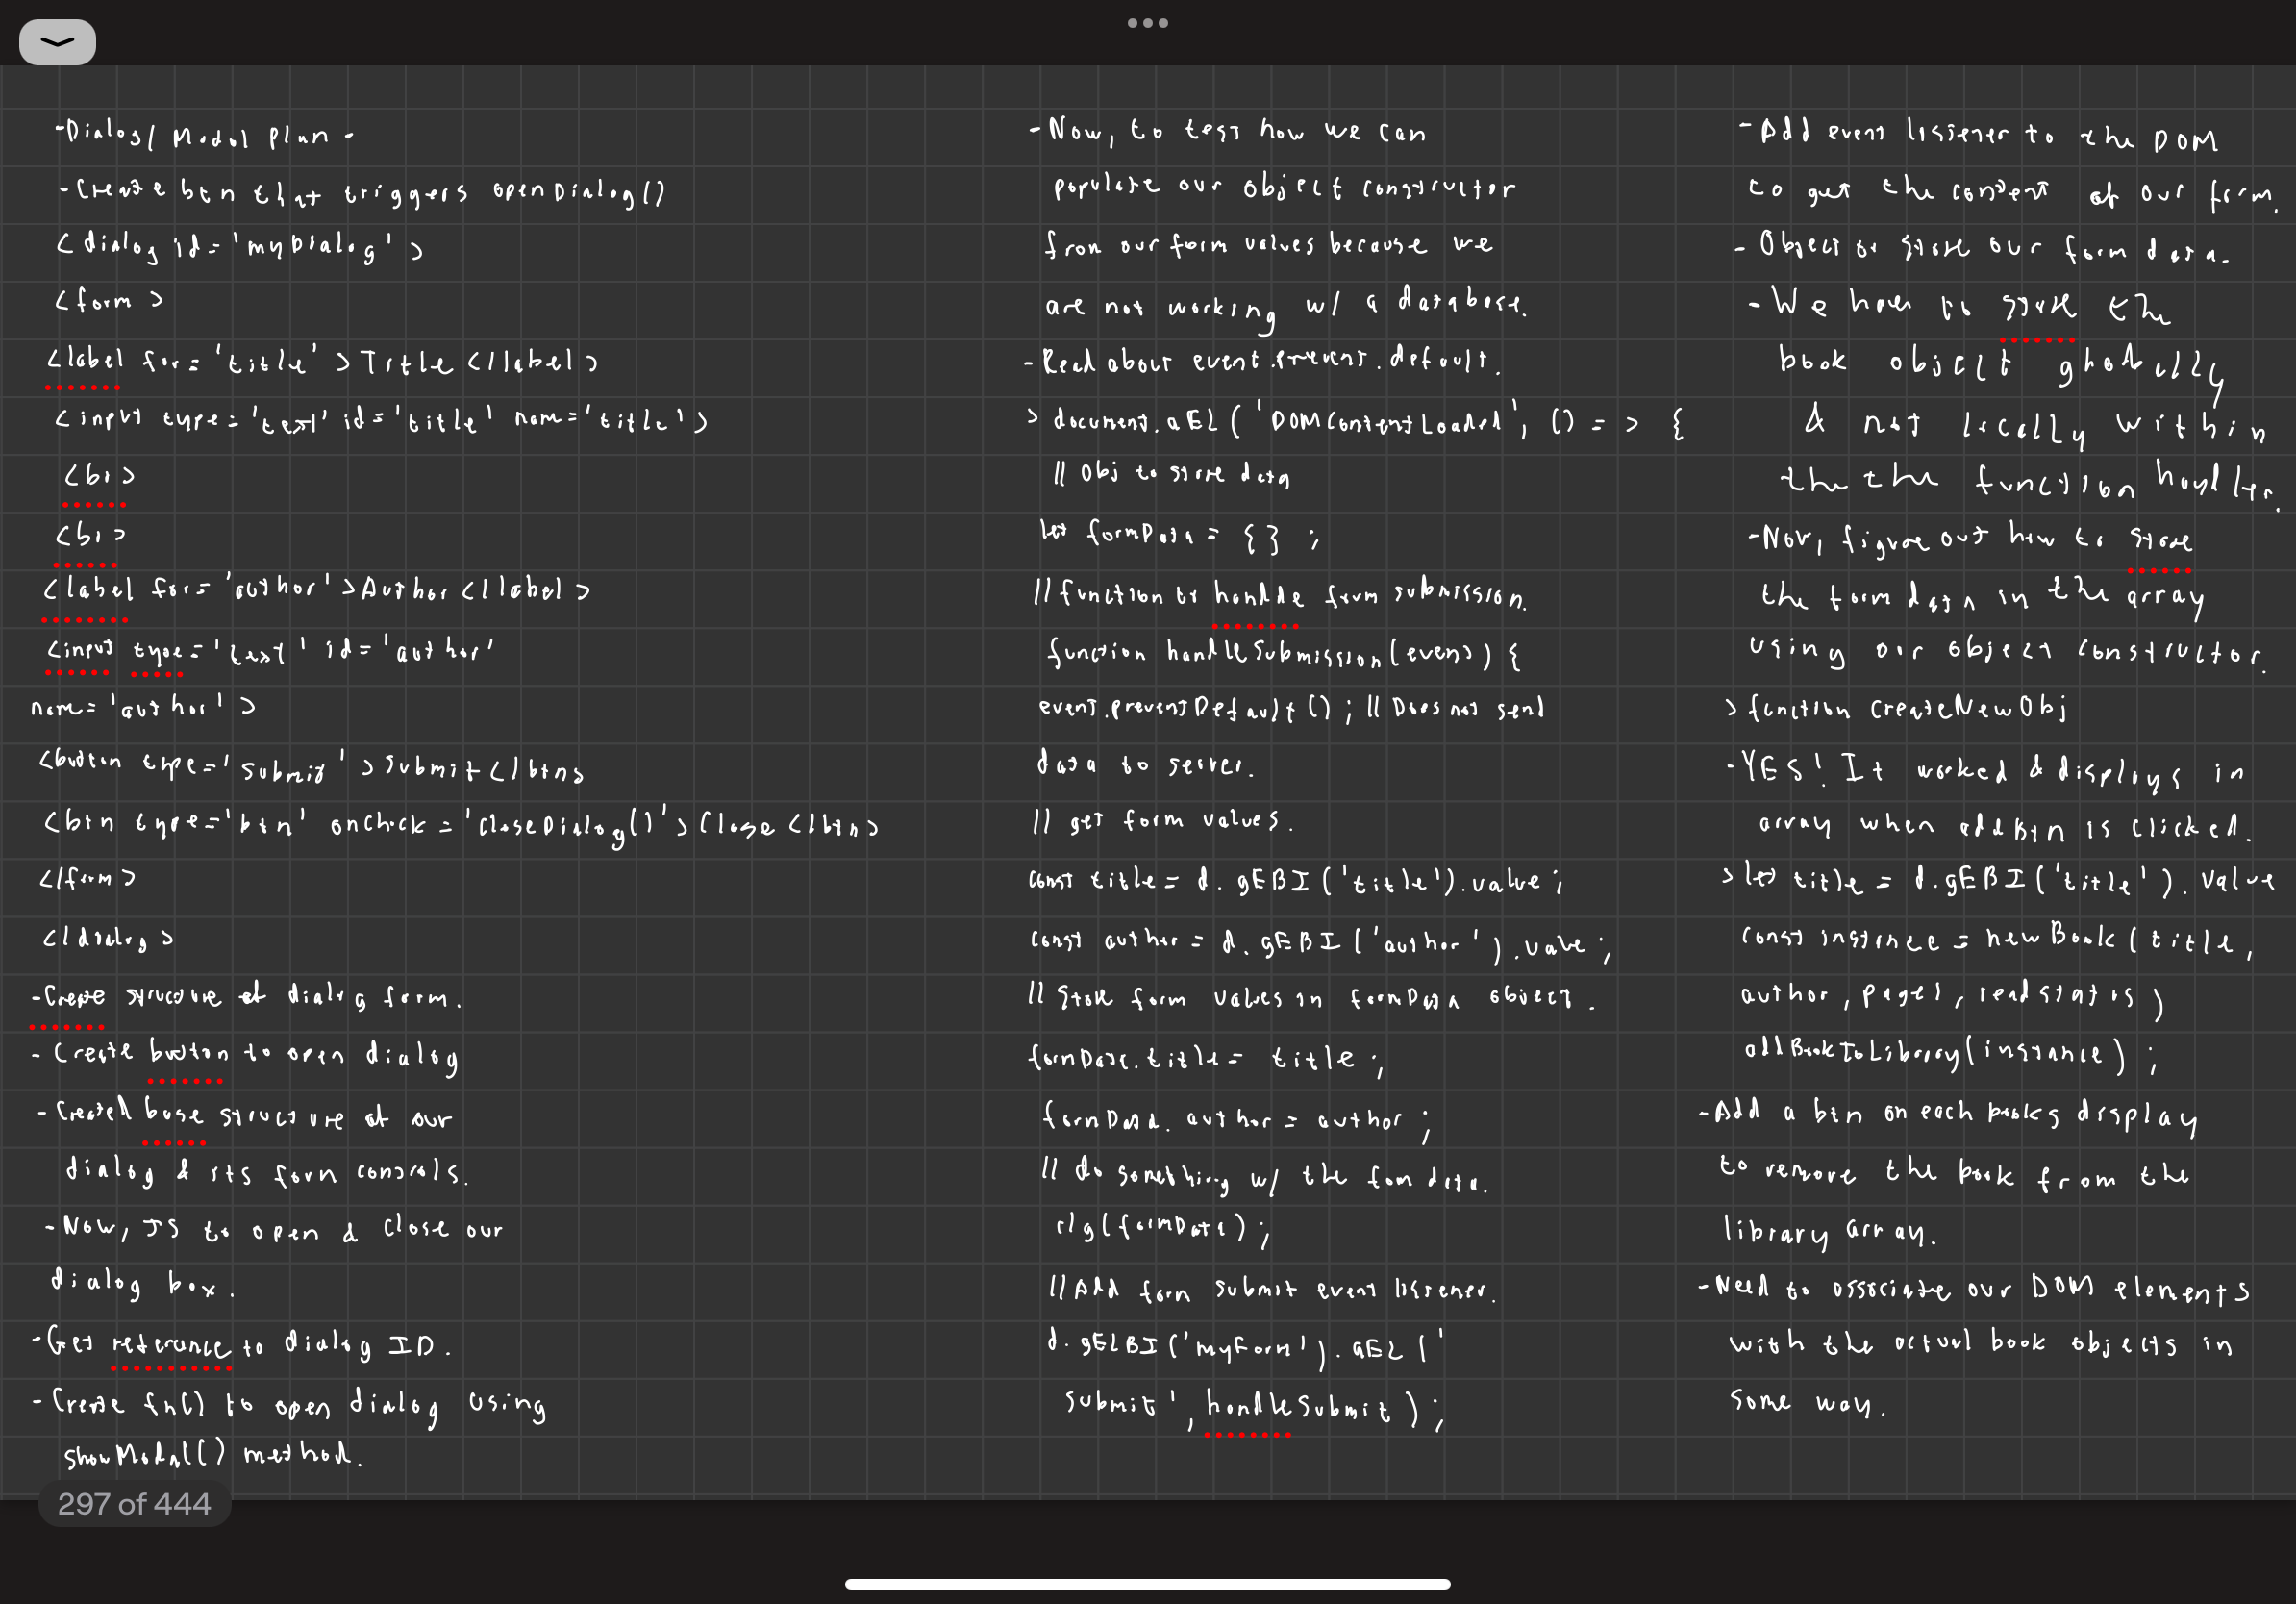 -Dialog/ Modal Plan -
-Create btn that triggers openDialog()
<dialog id='myDialog'>
<form>
<label for='title'>Title</label>
<input type='text' id='title' name='title'>
<br>
<br>
<label for='author'>Author</label>
<input type='text' id='author'
name='author'>
<button type='submit'>submit</btn>
<btn type='btn' onclick='closeDialog()'>Close</btn>
</form>
</dialog>
-Create structure of dialog form.
- Create button to open dialog
- Created base structure of our
dialog & its form controls.
-Now, JS to open & close our
dialog box.
-Get referance to dialog ID.
- Create fn() to open dialog using
showModal() method.
297 of 444
-Now, to test how we can
populate our object constructor
from our form values because we
are not working w/ a database.
-Read about event.prevent.default.
> document.aEL('DOMContentLoaded', () => {
// Obj to store data
let formData = {} ;
//function to handle form submission.
function handleSubmission(event) {
event.preventDefault(); // Does not send
data to server.
// get form values.
const title = d.gEBI('title').value;
const author = d.gEBI('author').value;
// Store form values in formData object.
formData.title = title;
formData.author = author;
// do something w/ the form data.
clg(formData);
//Add form submit event listener.
d.gELBI('myForm').aEL('
submit', handleSubmit);
-Add event listener to the DOM
to get the content of our form.
- Object to store our form data.
-We have to store the
book object globally
& not locally within
the the function handler.
-Now, figure out how to store
the form data in the array
using our object constructor.
>function createNewObj
-YES! It worked & displays in
array when addBtn is clicked.
>let title = d.gEBI('title').value
const instance = newBook(title,
author, pages, readstatus)
addBookToLibrary(instance);
-Add a btn on each books display
to remove the book from the
library array.
-Need to associate our DOM elements
with the actual book objects in
some way.